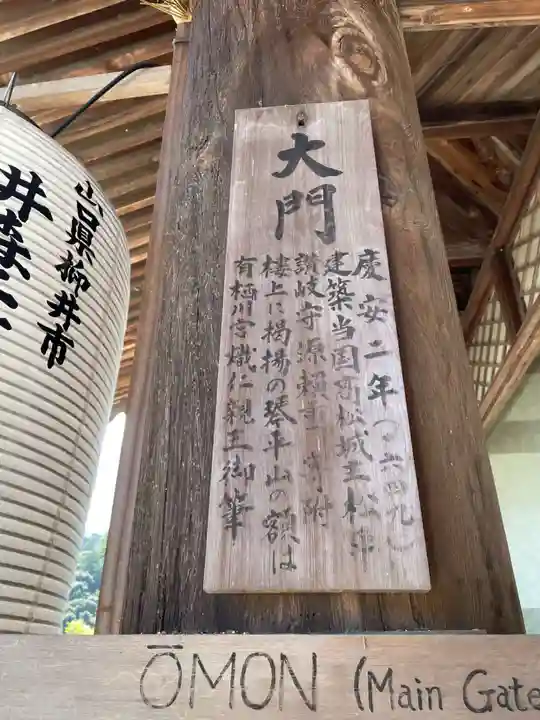 大門
慶安二年(一六四九)
建築当国高松城主松平
讃岐守源頼重寄附
楼上に掲揚の琴平山の額は
有栖川宮熾仁親王御筆
山口県柳井市
井森
ŌMON (Main Gate